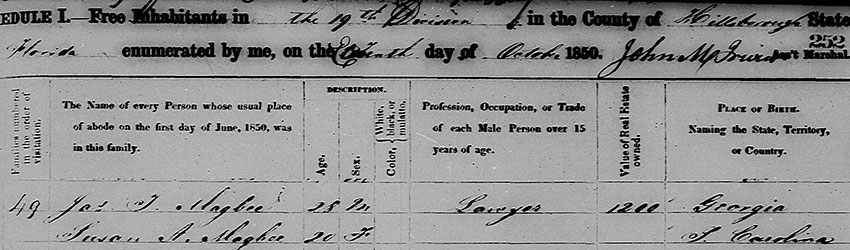 EDULE I.—Free Inhabitants in the 19th Division in the County of Hillsborough State
Florida enumerated by me, on the day of October 1850. John M Ass't Marshal.
252
Families numbered in the order of visitation.
The Name of every Person whose usual place of abode on the first day of June, 1850, was in this family.
DESCRIPTION.
Age.
Sex.
Color, White, black, or mulatto.
Profession, Occupation, or Trade of each Male Person over 15 years of age.
Value of Real Estate owned.
PLACE OF BIRTH. Naming the State, Territory, or Country.
49 Jas T. Magbee 28 M Lawyer 1200 Georgia
Susan A. Magbee 20 F S Carolina